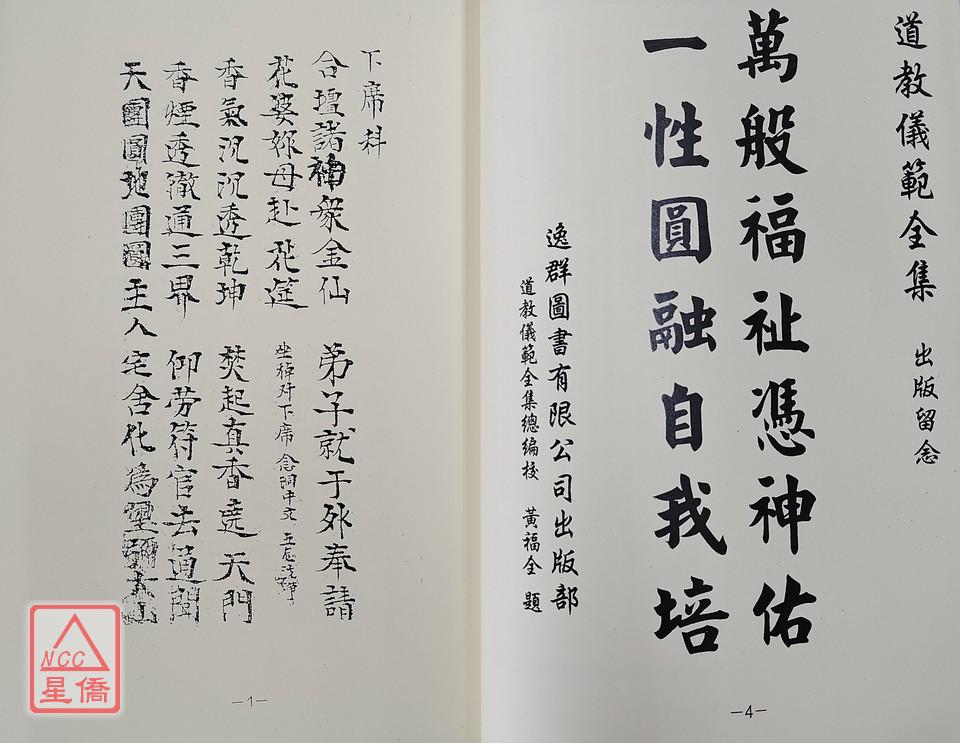 道教儀範全集 出版留念
萬般福祉憑神佑
一性圓融自我培
逸群圖書有限公司出版部
道教儀範全集總編校 黃福全 題
—4—
下席科
合壇諸神衆金仙 弟子就于外奉請
花婆姊母赴花筵 坐棹对下席 念洞中文
香氣沉沉透乾坤 焚起真香透天門
香煙透徹通三界 仰劳符官去通聞
天團圓地團圓主人宅舍化為
—1—
NCC
星僑